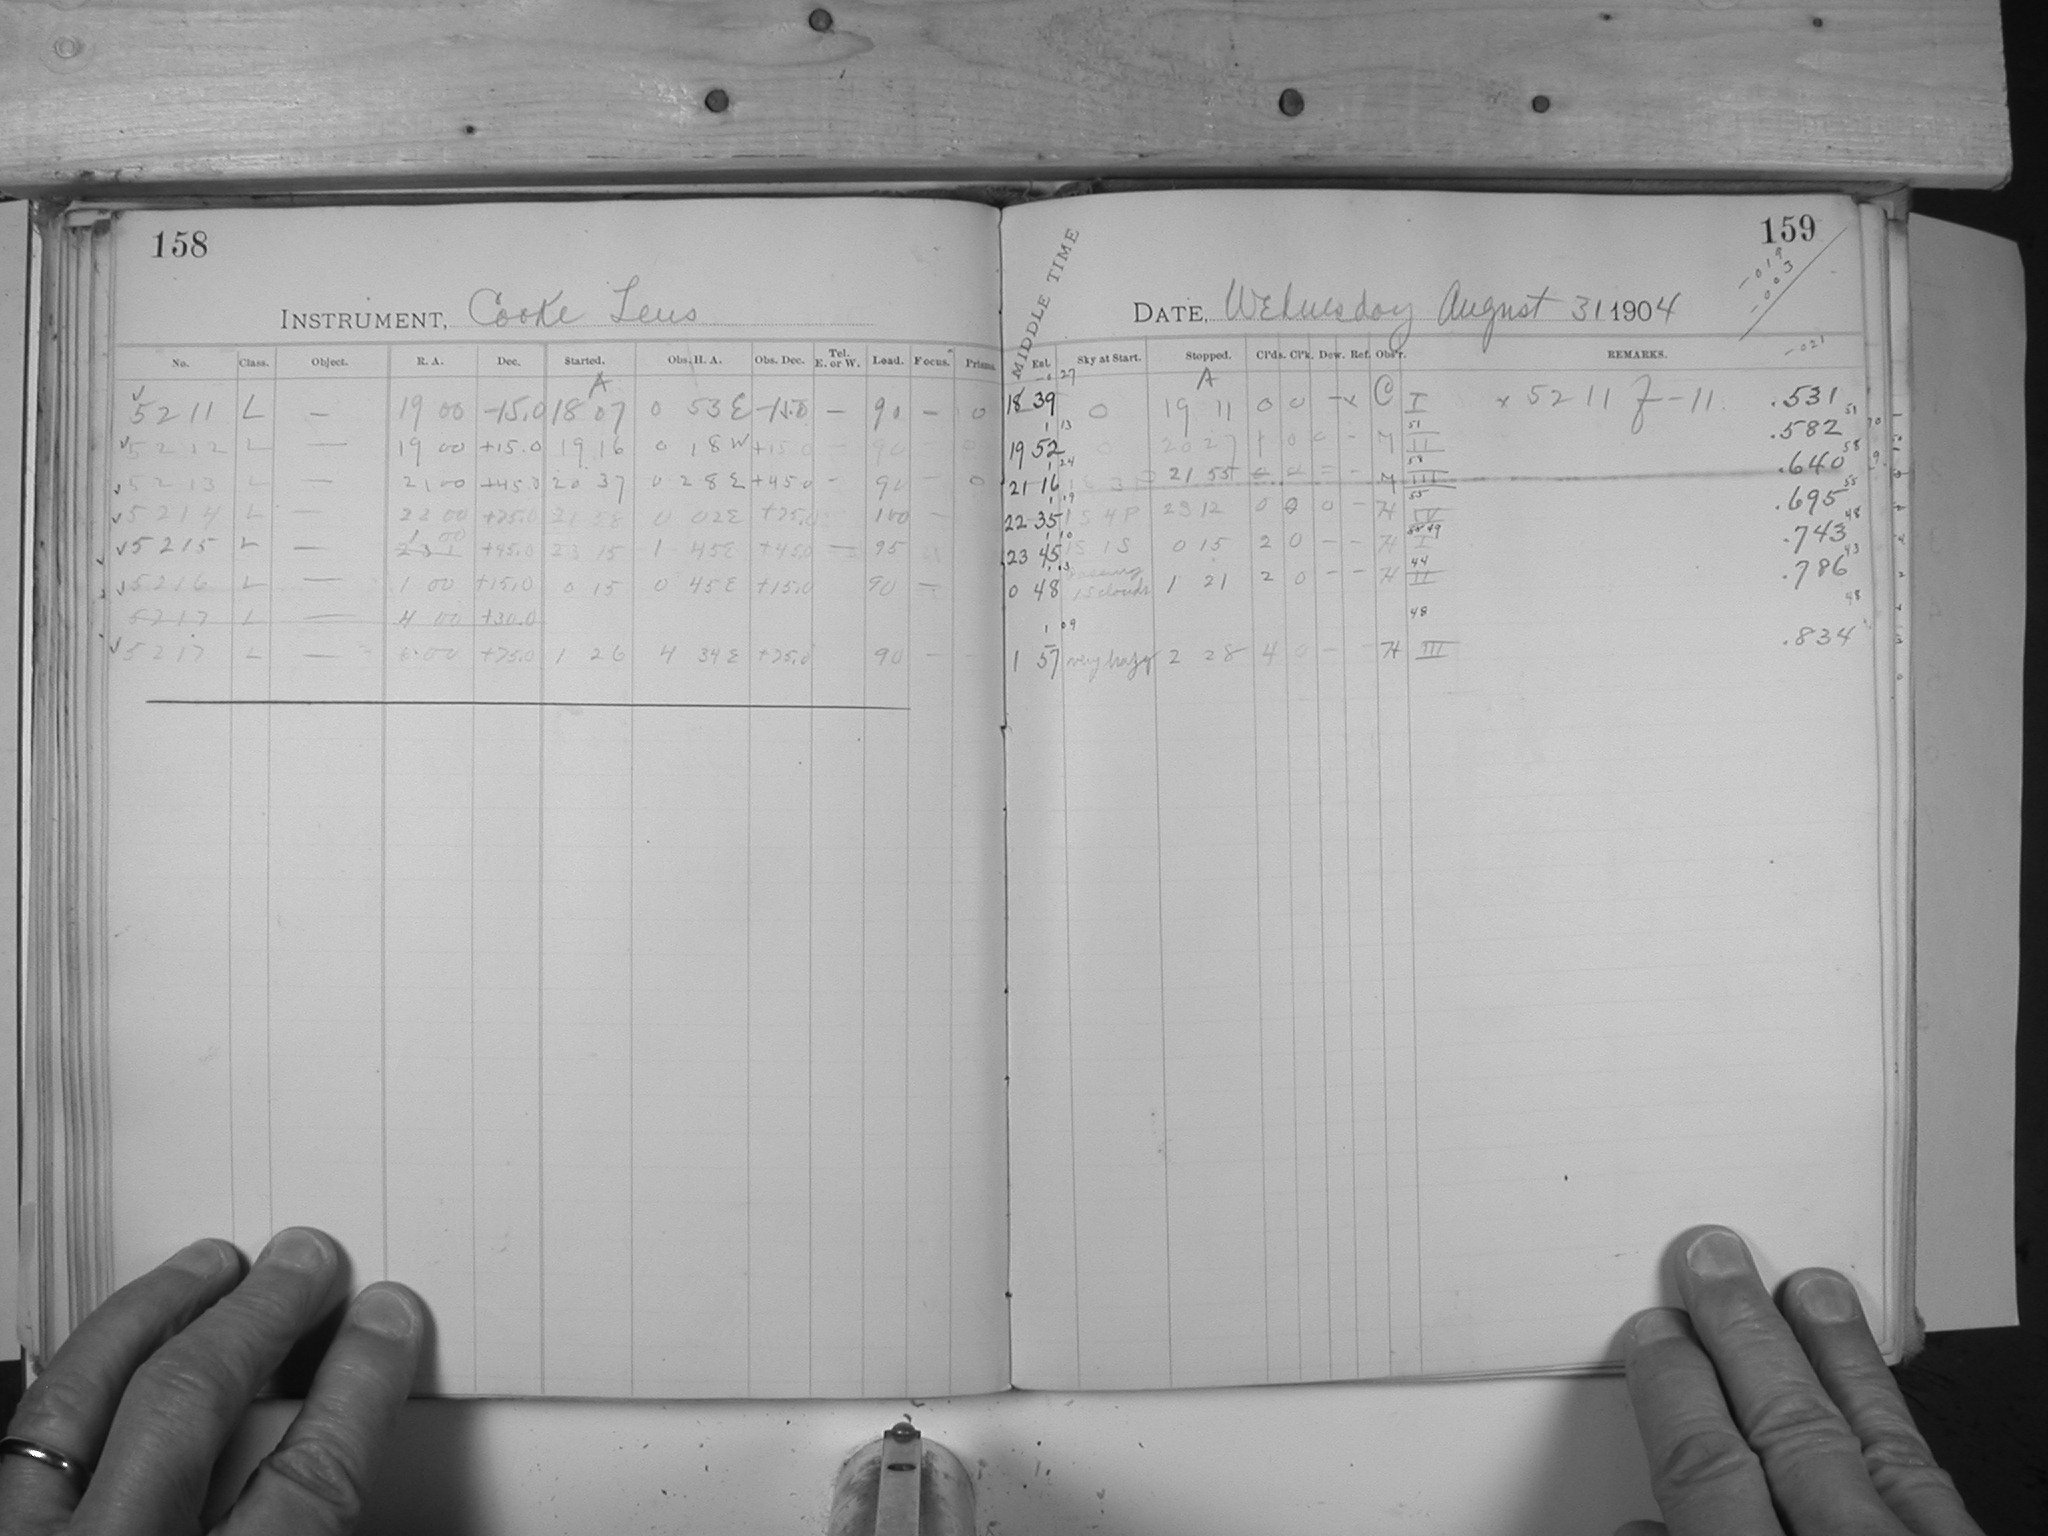 158
INSTRUMENT, Cooke Lens
No. Class. Object. R. A. Dec. Started. Obs. H. A. Obs. Dec. Tel. E. or W. Lead. Focus. Prisms.
A
5211 L — 19 00 -15.0 18 07 0 53 E -15.0 — 90 — 0
5212 L — 19 00 +15.0 19 16 0 18 W +15.0 - 90 - 0
5213 L — 21 00 +45.0 20 37 0 28 E +45.0 - 90 - 0
5214 L — 22 00 +75.0 21 58 0 02 E +75.0 100 —
1 00
5215 L — 23 1 +45.0 23 15 1 45 E +45.0 — 95
5216 L — 1 00 +15.0 0 15 0 45 E +15.0 90 —
5217 L — 4 00 +30.0
5217 L — 6 00 +75.0 1 26 4 34 E +75.0 90 —
159
-019
-003
MIDDLE TIME
DATE, Wednesday August 31 1904
Ent. Sky at Start. Stopped. Cl'ds. Cl'k. Dew. Ref. Obs'r. REMARKS. -021
27 A
18 39 0 19 11 0 0 - x C I x 5211 f - 11. .531
1 13 51 51
19 52 0 20 27 1 0 0 - M II .582
1 24 58 58
21 16 21 55 - M III .640
1 19 55 55
22 35 1S 4P 23 12 0 0 0 - H IV .695
1 10 49 48
23 45 1S 1S 0 15 2 0 - - H I .743
1 3 44 43
0 48 passing clouds 1 21 2 0 - - H II .786
1 09 48 48
1 57 very hazy 2 28 4 0 - - H III .834